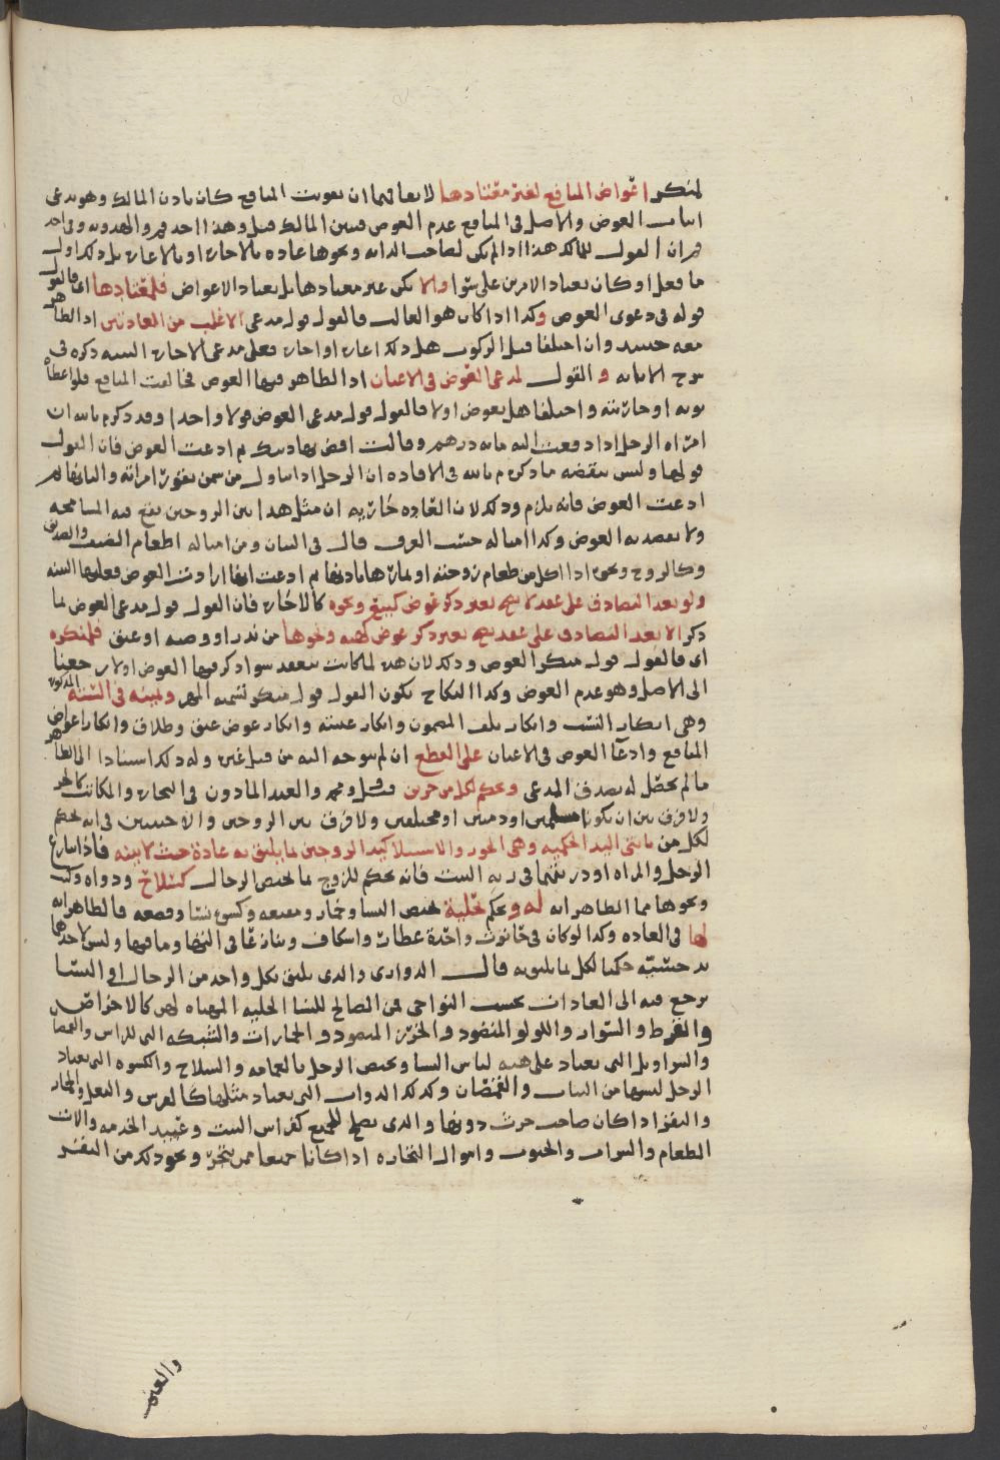 لمنكر اعواض المنافع لغير معتادها لا بها فيما ان تفويت المنافع كان باذن المالك وهو يدعي
اثبات العوض والاصل في المنافع عدم العوض المالك قيل وهذا احد قم والهدويه
القول للمالك هذا اذا لم يكن لصاحب الدابه ونحوها عاده بالاجاره او بالاعاره بل ذلك اول
ما فعل او كان يعتاد الامرين على سوا والا يكن غير معتادها بل يعتاد الاعواض فلمعتادها اي فالقول
قوله في دعوى العوض وكذا اذا كان هو الغالب فالقول قول مدعي الاغلب من العادتين اذ الظاهر
معه حينئذ وان اختلفا قبل الركوب هل ذلك اعاره او اجاره فعلى مدعي الاجاره البينه ذكره في
شرح الابانه و القول لمدعي العوض في الاعيان اذ الظاهر فيها العوض فخالفت المنافع فلو اعطاه
ثوبه او جاريته واختلفا هل بعوض او لا فالقول قول مدعي العوض قولا واحدا وقد ذكر م بالله ان
امراه الرجل اذا دفعت اليه مايه درهم وقالت اقض بها دينك ثم ادعت العوض فان القول
قولها وليس ينقضه ما ذكره م بالله في الافاده ان الرجل اذا تناول من سمن بقرة امراته والبانها ثم
ادعت العوض فانه يلزم وذلك لان العاده جاريه ان مثل هذا بين الزوجين يقع فيه المسامحه
ولا يقصد به العوض وكذا امثاله حسب العرف قال في البيان ومن امثاله اطعام الضيف والصديق
وكالزوج ونحوه اذا اكل من طعام زوجته او ثمارها باذنها ثم ادعت انها ارادت العوض فعليها البينه
ولو بعد التصادق على عقد لا يصح بغير ذكر عوض كبيع ونحوه كالاجاره فان القول قول مدعي العوض لما
ذكر الا بعد التصادق على عقد يصح بغير ذكر عوض كهبه ونحوها من نذر او وصيه او عتق فلمنكره
اي فالقول قول منكر العوض وذلك لان هذه لما كانت تنعقد سوا ذكر فيها العوض او لا رجعنا
الى الاصل وهو عدم العوض وكذا النكاح يكون القول قول منكر تسميه المهر وبينه في الستة المذكوره
وهي انكار النسب وانكار تلف المضمون وانكار غيبته وانكار عوض عتق وطلاق وانكار اعواض
المنافع وادعا العوض في الاعيان على القطع ان لم يتوجه اليه من قبل غيره وله ذلك استنادا الى الظاهر
ما لم يحصل له بصدق المدعي وحكم لكل من حرين قيل ومحمد والعبد الماذون في التجاره والمكاتب كالحر
ولا فرق بين ان يكونا مسلمين او ذميين او مختلفين ولا فرق بين الزوجين والاجنبيين في انه يحكم
لكل من ثابتي اليد الحكميه وهي الحوز والاستيلا كيد الزوجين بما يليق به عادة حيث لا بينه فاذا تنازع
الرجل والمراه او ورثتهما في ربه البيت فانه يحكم للزوج بما يختص الرجال كسلاح ودواه وكتب
ونحوها مما الظاهر انه له ويحكم كحلية تختص النسا وخمار ومقنعه وكسوة نسا وقصعه فالظاهر انه
لها في العاده وكذا لو كان في حانوت واحدة عطار واسكاف وتنازعا في البها وما فيها وليس لاحدهما
يد حسيه حكما لكل بما يليق به قال الدواري والذي يليق بكل واحد من الرجال او النسا
يرجع فيه الى العادات بحسب النواحي فمن الصالح للنسا الحليه المهياه لهن كالاخراص
والقرط والسوار واللولو المنضود والخرز المنضود والخمارات والشبكه التي للراس والعصا
والسراويل التي يعتاد على هيه لباس النسا ويختص الرجل بالعمامه والسلاح والكسوه التي يعتاد
الرجل لبسها من الثياب والقمصان وكذلك الدواب التي يعتاد مثلها كالفرس والبغل والحمار
والبقر اذا كان صاحب حرث دونها والذي يصلح للجميع كفراش البيت وعبيد الخدمه والات
الطعام والشراب والحبوب واموال التجاره اذا كانا جميعا ممن يتجر ونحو ذلك من البقر
والغنم